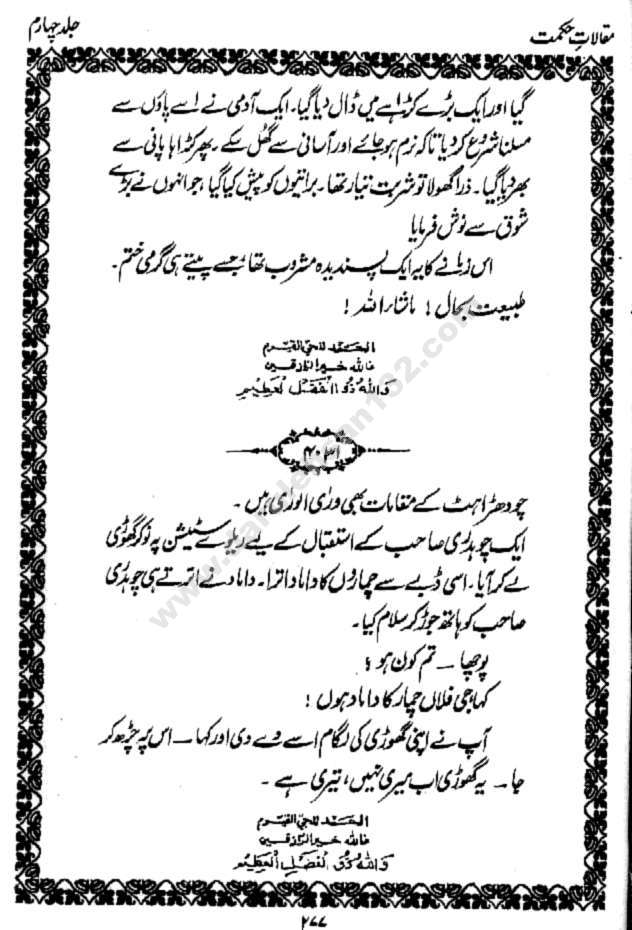 مقالاتِ حکمت
جلد چہارم
گیا اور ایک بڑے کڑاہے میں ڈال دیا گیا۔ ایک آدمی نے اسے پاؤں سے
مسلنا شروع کر دیا تا کہ نرم ہو جائے اور آسانی سے گھل سکے۔ پھر کڑاہا پانی سے
بھر دیا گیا۔ ذرا گھولا تو شربت تیار تھا۔ براتیوں کو پیش کیا گیا، جو انہوں نے بڑے
شوق سے نوش فرمایا
اس زمانے کا یہ ایک پسندیدہ مشروب تھا جسے پیتے ہی گرمی ختم۔
طبیعت بحال! ماشاء اللہ!
الحمد للحی القیوم
فاللہ خیر الرازقین
واللہ ذو الفضل العظیم
۴۰۳۱
چودھراہٹ کے مقامات بھی ورٰی الورٰی ہیں۔
ایک چوہدری صاحب کے استقبال کے لیے ریلوے سٹیشن پہ نوکر گھوڑی
لے کر آیا۔ اسی ڈبے سے چماروں کا داماد اترا۔ داماد نے اترتے ہی چوہدری
صاحب کو ہاتھ جوڑ کر سلام کیا۔
پوچھا ـ تم کون ہو؟
کہا جی فلاں چمار کا داماد ہوں!
آپ نے اپنی گھوڑی کی لگام اسے دے دی اور کہا ـ اس پہ چڑھ کر
جا ـ یہ گھوڑی اب میری نہیں، تیری ہے۔
الحمد للحی القیوم
فاللہ خیر الرازقین
واللہ ذو الفضل العظیم
۲۷۷